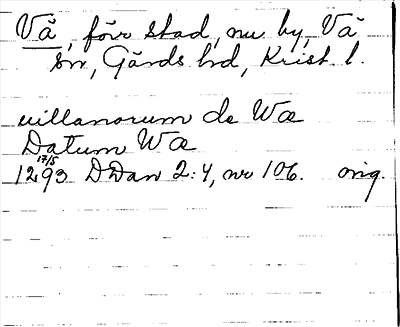 Vä, förr stad, nu by, Vä
sn, Gärds hd, Krist. l.
villanorum de Wæ
Datum Wæ
17/5
1293 DDan 2:4, nr 106. orig.